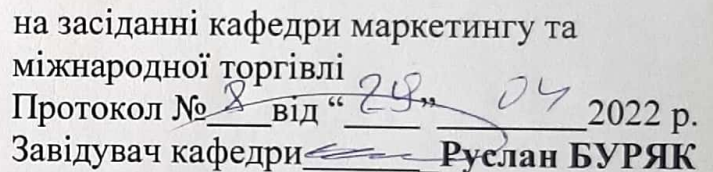 на засіданні кафедри маркетингу та
міжнародної торгівлі
Протокол № 8 від “ 29 ” 04 2022 р.
Завідувач кафедри Руслан БУРЯК